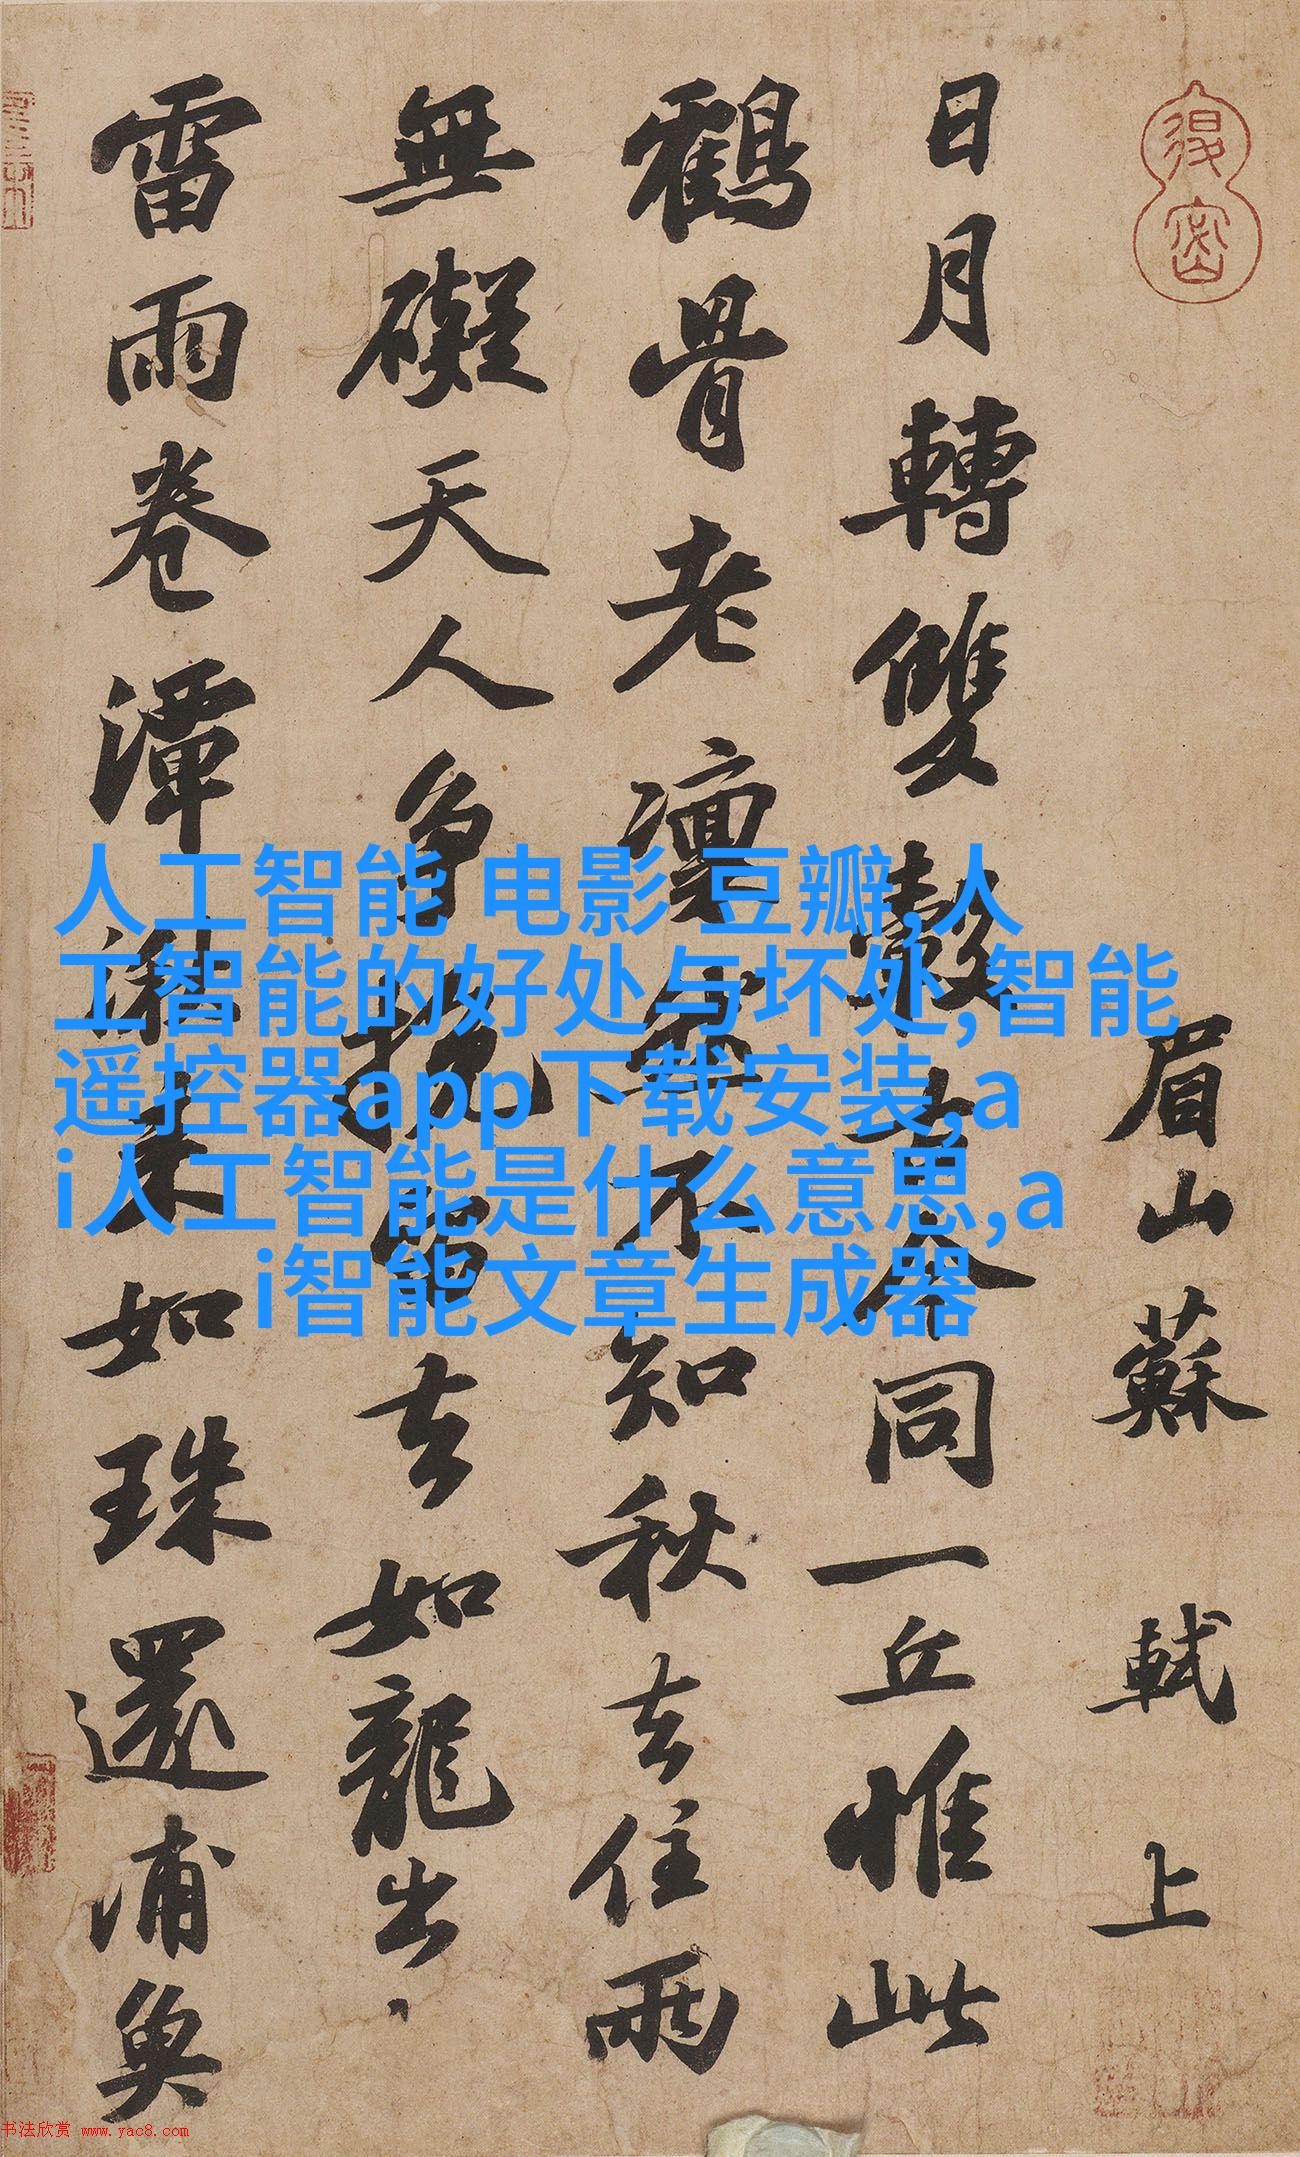 眉山蘇軾上
日月轉雙轂古今同一丘惟此
鶴骨老凜然不知秋去住兩
無礙天人爭挽留去如龍出
雷雨卷潭湫來如珠還浦魚
人工智能 电影 豆瓣,人
工智能的好处与坏处,智能
遥控器app下载安装,a
i人工智能是什么意思,a
i智能文章生成器
书法欣赏 www.yac8.com